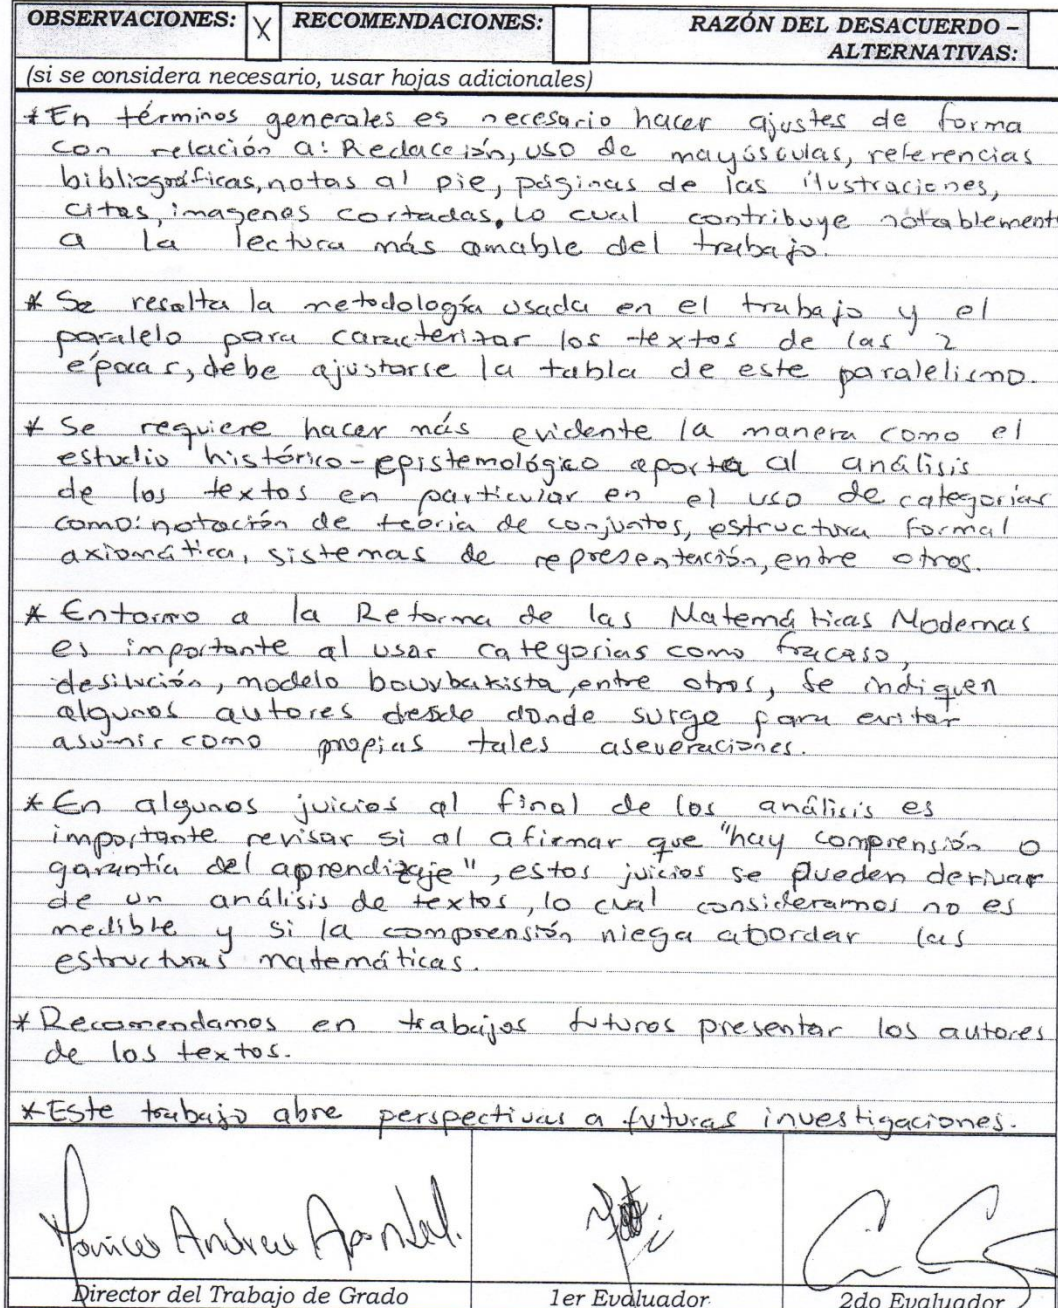 OBSERVACIONES: X RECOMENDACIONES: RAZÓN DEL DESACUERDO –
ALTERNATIVAS:
(si se considera necesario, usar hojas adicionales)
* En términos generales es necesario hacer ajustes de forma
con relación a: Redacción, uso de mayúsculas, referencias
bibliográficas, notas al pie, páginas de las ilustraciones,
citas, imagenes cortadas, lo cual contribuye notablement
a la lectura más amable del trabajo.
* Se resalta la metodología usada en el trabajo y el
paralelo para caracterizar los textos de las 2
épocas, debe ajustarse la tabla de este paralelismo.
* Se requiere hacer más evidente la manera como el
estudio histórico-epistemológico aporta al análisis
de los textos en particular en el uso de categorías
como: notación de teoría de conjuntos, estructura formal
axiomática, sistemas de representación, entre otros.
* Entorno a la Reforma de las Matemáticas Modernas
es importante al usar categorias como fracaso,
desilución, modelo bourbakista, entre otros, se indiquen
algunos autores desde donde surge para evitar
asumir como propias tales aseveraciones.
* En algunos juicios al final de los análisis es
importante revisar si al afirmar que "hay comprensión o
garantía del aprendizaje", estos juicios se pueden derivar
de un análisis de textos, lo cual consideramos no es
medible y si la comprensión niega abordar las
estructuras matemáticas.
* Recomendamos en trabajos futuros presentar los autores
de los textos.
* Este trabajo abre perspectivas a futuras investigaciones.
Director del Trabajo de Grado 1er Evaluador 2do Evaluador